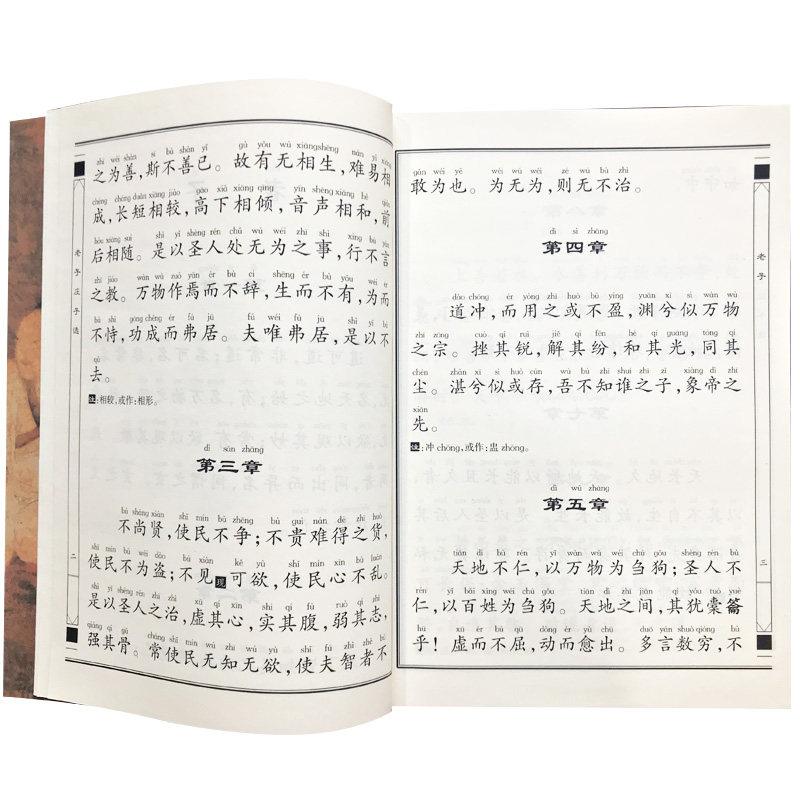 老子庄子选
zhī wéi shàn sī bù shàn yǐ gù yǒu wú xiāngshēng nán yì xiāng
之为善,斯不善已。故有无相生,难易相
chéng cháng duǎn xiāng jiào gāo xià xiāng qīng yīn shēng xiāng hé qián
成,长短相较,高下相倾,音声相和,前
hòu xiāng suí shì yǐ shèng rén chǔ wú wéi zhī shì xíng bù yán
后相随。是以圣人处无为之事,行不言
zhī jiào wàn wù zuò yān ér bù cí shēng ér bù yǒu wéi ér
之教。万物作焉而不辞,生而不有,为而
bù shì gōng chéng ér fú jū fú wéi fú jū shì yǐ bù
不恃,功成而弗居。夫唯弗居,是以不
qù
去。
注:相较,或作:相形。
dì sān zhāng
第三章
bù shàng xián shǐ mín bù zhēng bù guì nán dé zhī huò
不尚贤,使民不争;不贵难得之货,
shǐ mín bù wéi dào bù xiàn kě yù shǐ mín xīn bù luàn
使民不为盗;不见现可欲,使民心不乱。
shì yǐ shèng rén zhī zhì xū qí xīn shí qí fù ruò qí zhì
是以圣人之治,虚其心,实其腹,弱其志,
qiáng qí gǔ cháng shǐ mín wú zhī wú yù shǐ fú zhì zhě bù
强其骨。常使民无知无欲,使夫智者不
二
gǎn wéi yě wéi wú wéi zé wú bù zhì
敢为也。为无为,则无不治。
dì sì zhāng
第四章
dào chōng ér yòng zhī huò bù yíng yuān xī sì wàn wù
道冲,而用之或不盈,渊兮似万物
zhī zōng cuò qí ruì jiě qí fēn hé qí guāng tóng qí
之宗。挫其锐,解其纷,和其光,同其
chén zhàn xī sì huò cún wú bù zhī shuí zhī zǐ xiàng dì zhī
尘。湛兮似或存,吾不知谁之子,象帝之
xiān
先。
注:冲 chōng,或作:盅 zhōng。
dì wǔ zhāng
第五章
tiān dì bù rén yǐ wàn wù wéi chú gǒu shèng rén bù
天地不仁,以万物为刍狗;圣人不
rén yǐ bǎi xìng wéi chú gǒu tiān dì zhī jiān qí yóu tuó yuè
仁,以百姓为刍狗。天地之间,其犹橐籥
hū xū ér bù qū dòng ér yù chū duō yán shuò qióng bù
乎!虚而不屈,动而愈出。多言数穷,不
老子
三